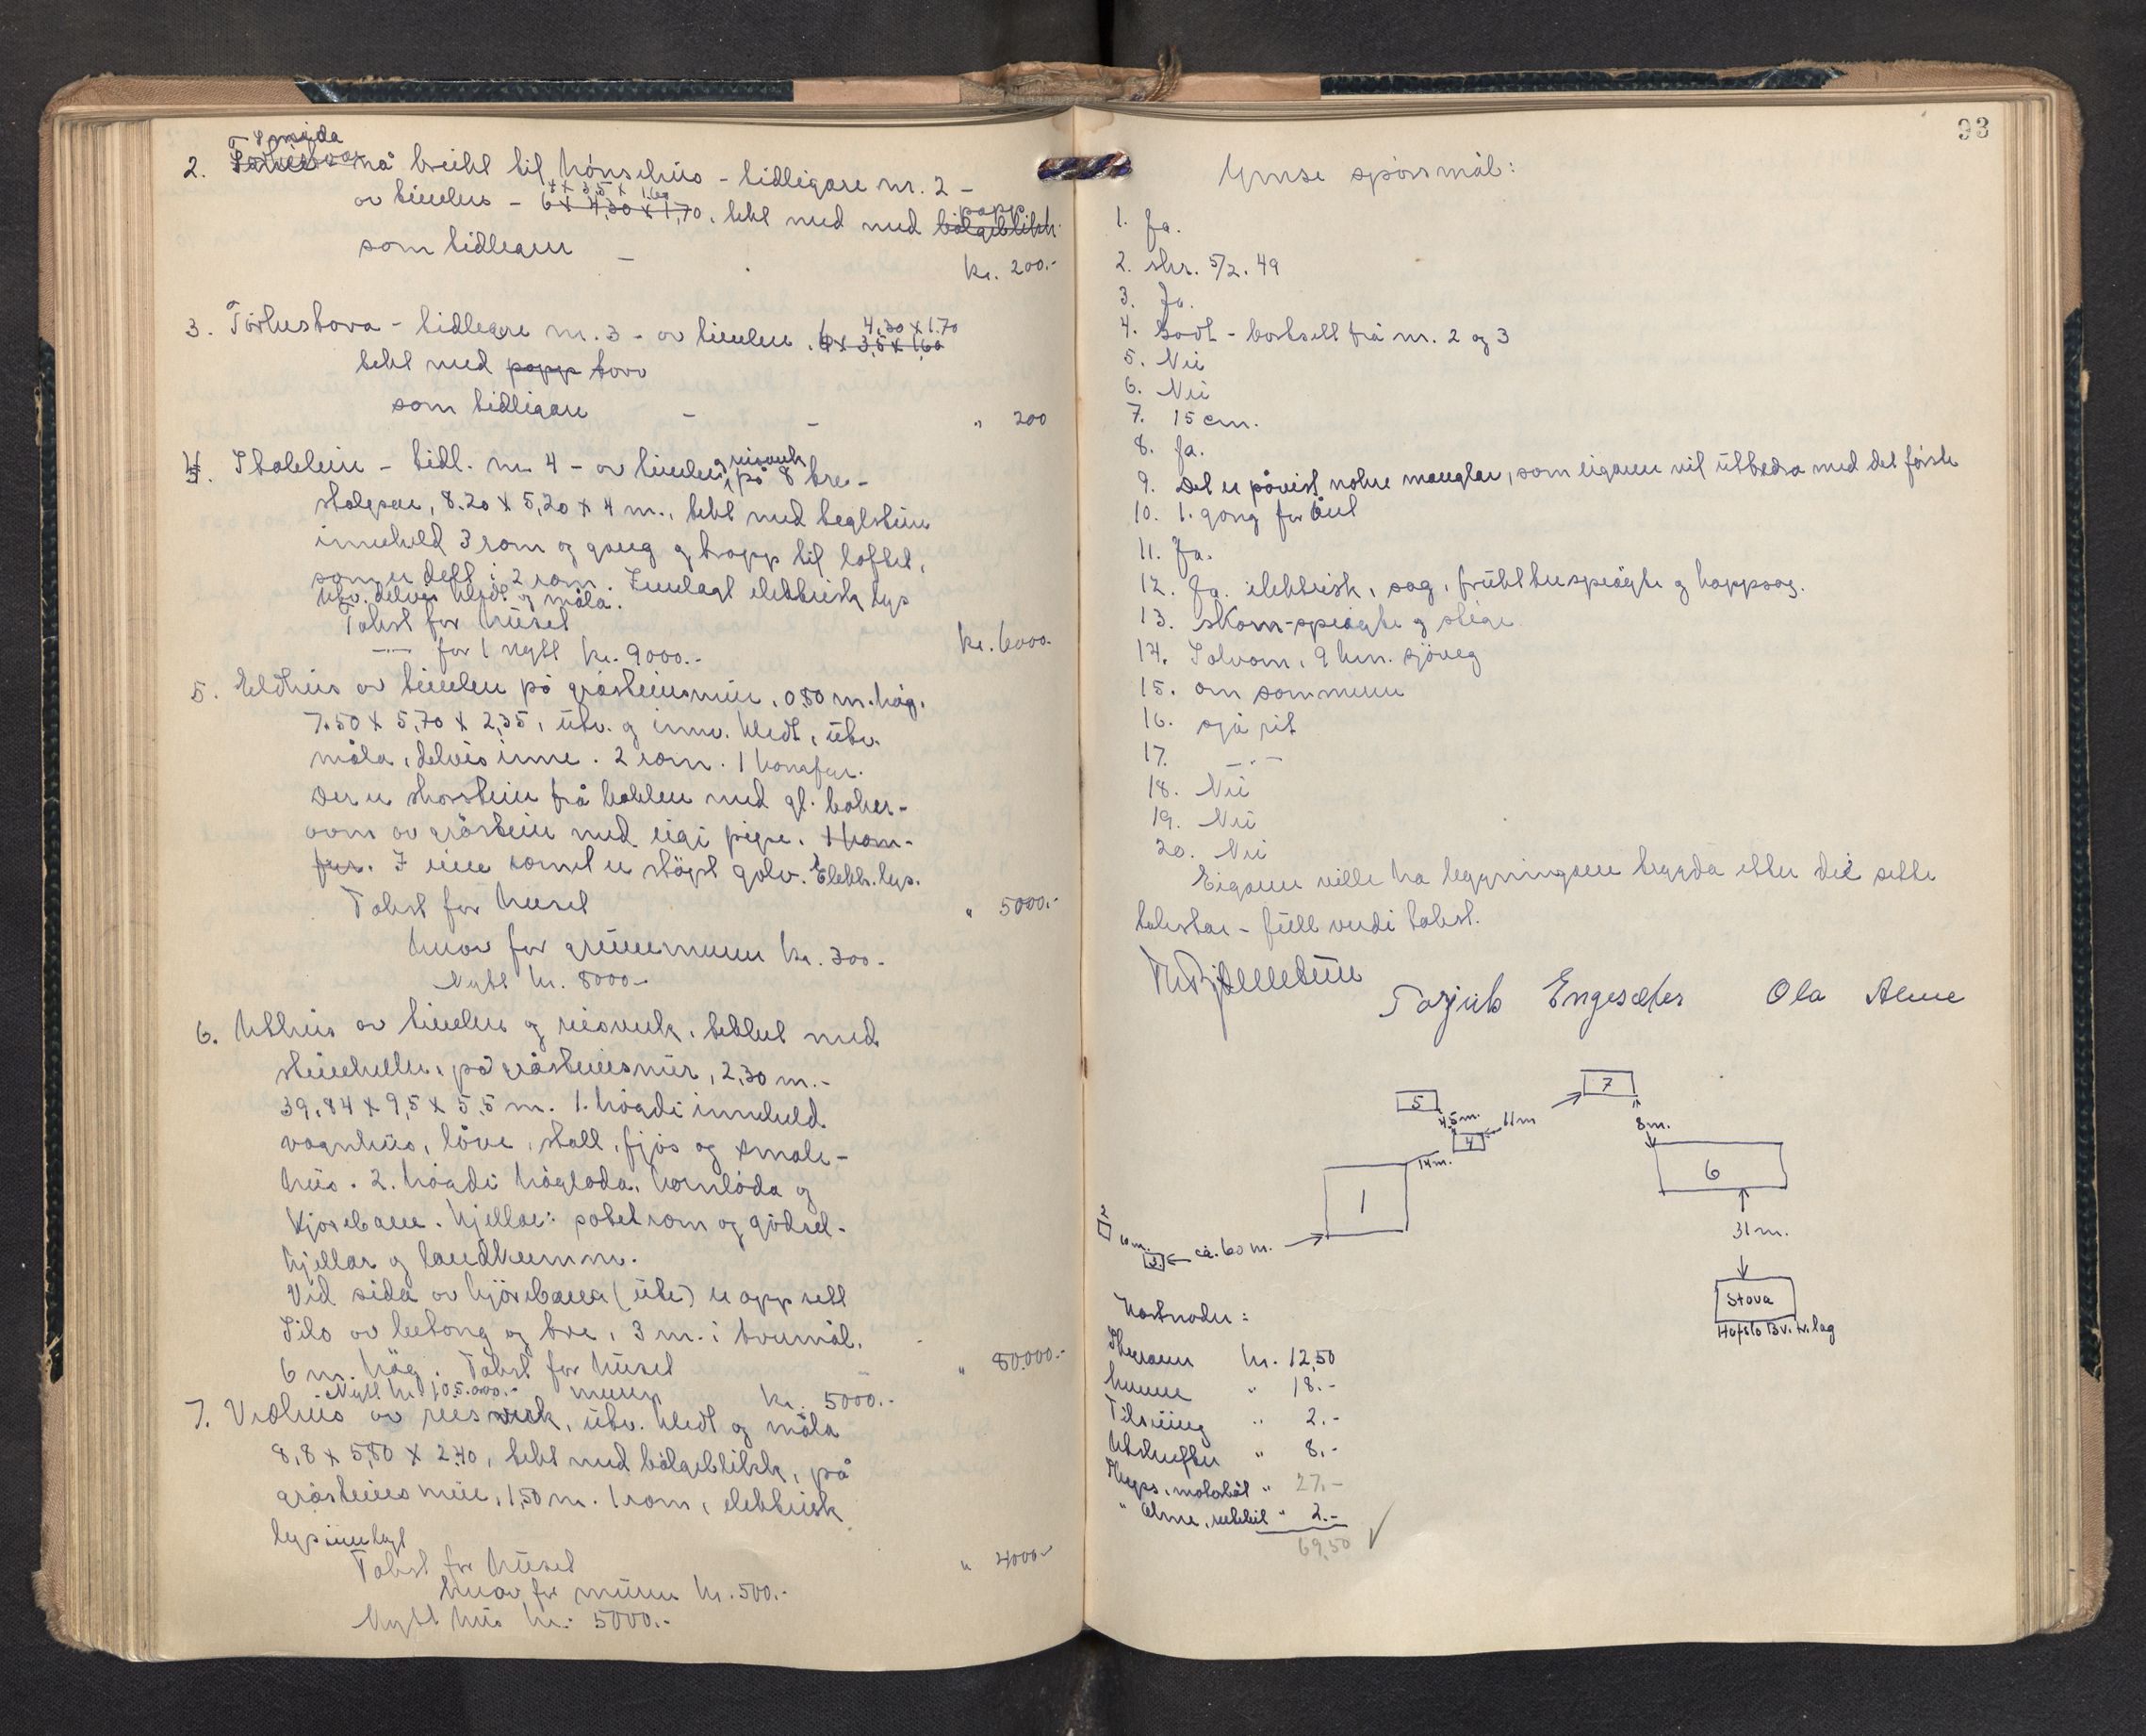 Smida
2. Tørhusstova nå brukt til hönsehus - tidligare nr. 2 -
4 x 3,5 x 1.60
av timber - 6 x 4,30 x 1,70, tekt med med bølgeblikk papp
som tidlegare -
kr. 200.-
3. Tørhustova - tidlegare nr. 3 - av timber. 6 x 4,30 x 1.70
4 x 3,5 x 1,60
tekt med papp torv
som tidligare - - " 200
4. Stabbur - tidl. nr. 4 - av timber og reisverk på 8 tre-
stolpar, 8.20 x 5,20 x 4 m., tekt med teglstein
inneheld 3 rom og gang og trapp til loftet,
som er delt i 2 rom. Innlagt elektrisk lys
Utv. delvis kledt og måla.
Takst for huset kr. 6000.-
—"— for 1 nytt kr. 9000.-
5. Eldhus av timber på gråsteinsmur, 0.80 m. høg.
7.50 x 5,70 x 2,35, utv. og innv. kledt, utv.
måla, delvis inne. 2 rom. 1 komfyr.
Der er skorstein frå kjellar med gl. bakar-
ovn av gråstein med eigi pipe. 1 kom-
fyr. I eine romet er støpt golv. Elektr. lys.
Takst for huset " 5000.-
herav for grunnmuren kr. 300.-
Nytt kr. 8000.-
6. Uthus av timber og reisverk, tekket med
steinheller, på gråsteinsmur, 2,30 m.-
39,84 x 9,5 x 5,5 m. 1. høgdi inneheld
vognhus, låve, stall, fjøs og smale-
hus. 2. høgdi høyløda, kornløda og
kjørebane. Kjellar: potetrom og gödsel-
kjellar og landkumm.
Vid sida av kjörebana (ute) er oppsett
Silo av betong og tre, 3 m. i tverrmål,
6 m. høg. Takst for huset " 80.000.-
Nytt kr. 105.000.- muren kr. 5000.-
7. Vedhus av reisverk, utv. kledt og måla
8,8 x 5,80 x 2,40, tekt med bølgeblikk, på
gråsteins mur, 1,50 m. 1 rom, elektrisk
lys innlagt
Takst for huset " 4000.-
herav for muren kr. 500.-
Nytt hus kr. 5000.-
93
Ymse spörsmål:
1. Ja.
2. skr. 5/2. 49
3. Ja.
4. Godt - bortsett frå nr. 2 og 3
5. Nei
6. Nei
7. 15 cm.
8. Ja.
9. Det er påvist nokre manglar, som eigaren vil utbedra med det første
10. 1. gong for året
11. Ja.
12. Ja. elektrisk, sag, frukttresprøyte og kappsag.
13. skom-sprøyte og stige
14. Solvorn, 9 km. sjöveg
15. om sommeren
16. sjå rit
17. —"—
18. Nei
19. Nei
20. Nei
Eigaren ville ha bygningane trygda etter dei sette
takstar - full verdi takst.
Torjuls Engesæter Ola Alme
5
7
4,5 m.
4
11 m
8 m.
14 m.
6
1
2
10 m.
3.
ca. 60 m.
31 m.
Stova
Hafslo Bv. tr.lag
Kostnader:
Skjønn kr. 12,50
" 18.-
Tilsuing " 2.-
Utskrifter " 8.-
Skyss, motorbåt " 27.-
" Alme, rutebil " 2.-
69,50